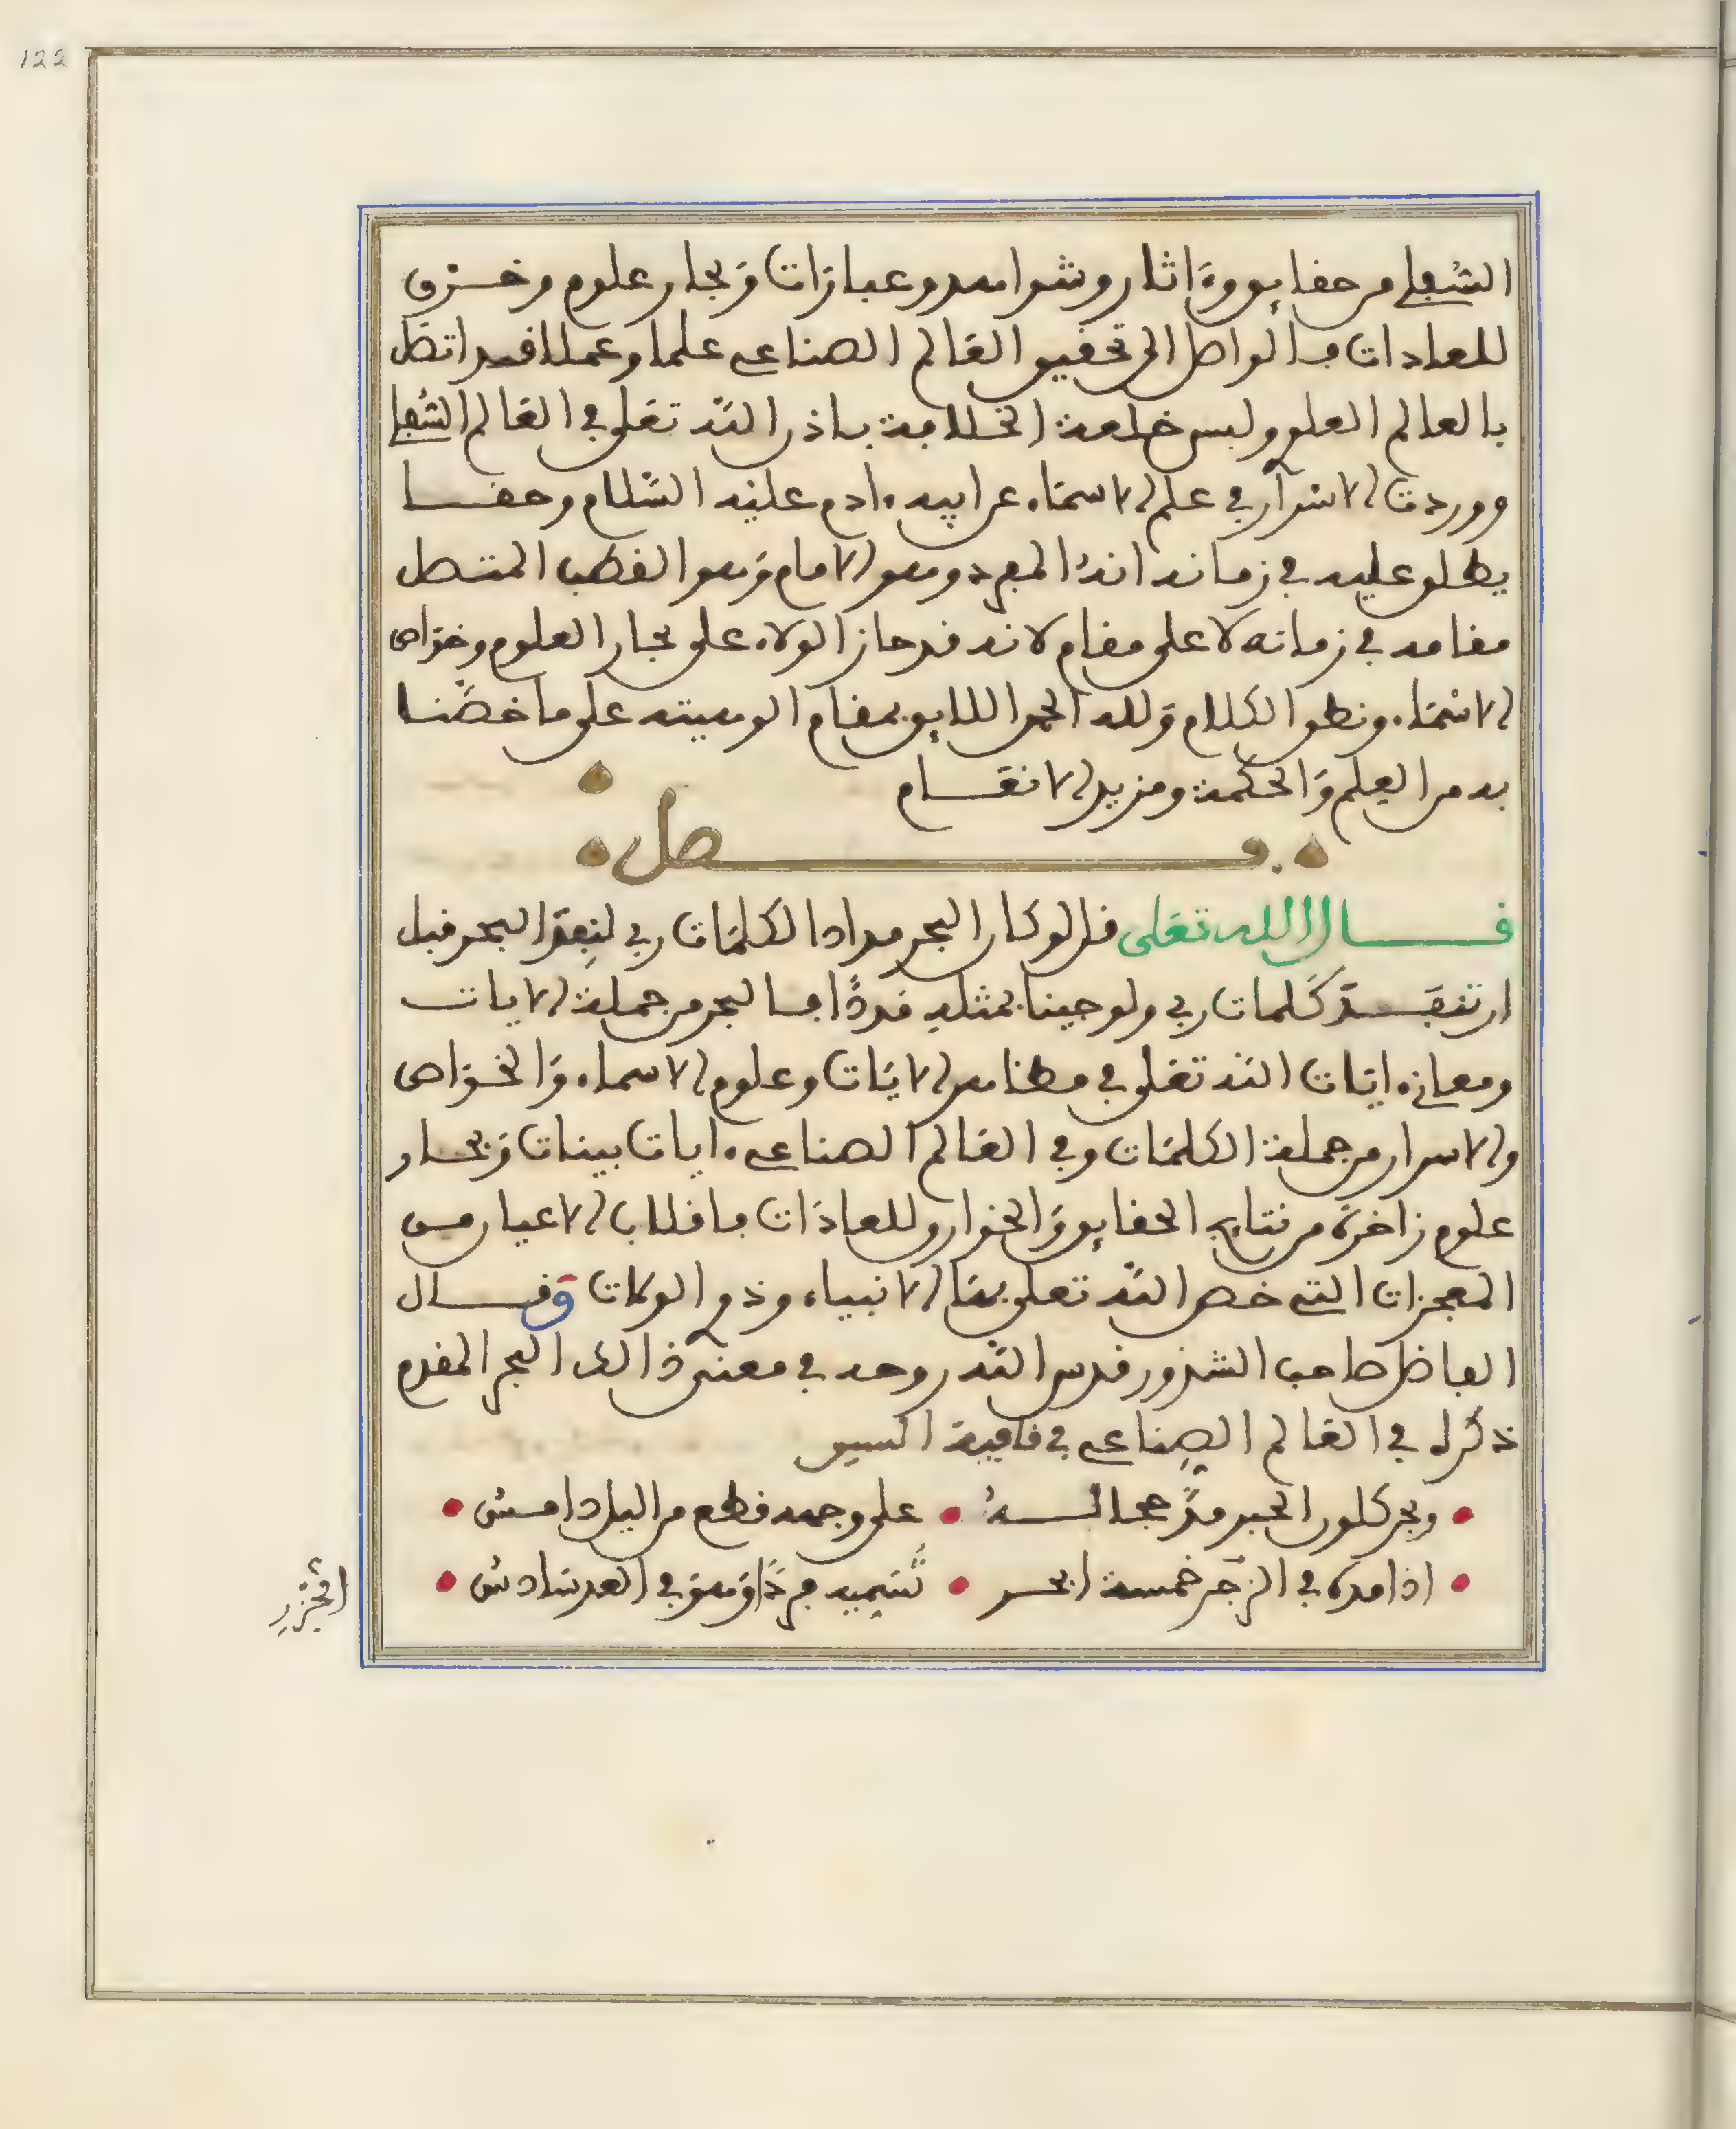 122
السفلي من حقايق وءاثار وشواهد وعبارات وبحار علوم وخرق
للعادات فالواصل الى تحقيق العالم الصناعي علما وعملا قد اتصل
بالعالم العلوي ولبس خلعة الخلافة باذن الله تعلى في العالم السفلي
وورث الاسرار في علم الاسماء عن ابيه ءادم عليه السلام وحقا
يطلق عليه في زمانه انه المفرد وهو الامام وهو القطب المتصل
مقامه في زمانه لاعلى مقام لانه قد حاز الولاء على بحار العلوم وخواص
الاسماء ونطق الكلام ولله الحمد اللايق بمقام الوهيته على ما خصنا
به من العلم والحكمة ومزيد الانعام
فصل
قال الله تعلى قل لو كان البحر مدادا لكلمات ربي لنفد البحر قبل
ان تنفد كلمات ربي ولو جينا بمثله مددا فالبحر من جملة الايات
ومعاني ءايات الله تعلى في مظاهر الايات وعلوم الاسماء والخواص
والاسرار من جملة الكلمات وفي العالم الصناعي ءايات بينات وبحار
علوم زاخرة من نتايج الحقايق والخوارق للعادات فانقلاب الاعيان من
المعجزات التي خص الله تعلى بها الانبياء وذوي الولات وقال
الفاضل صاحب الشذور قدس الله روحه في معنى ذالك البحر المقدم
ذكره في العالم الصناعي في قافية السين
وبحر كلون الحبر مد عجالسه علىوجهه قطع من اليل دامس
اذا مده في الزجر خمسة ابحر تسميه فردا وهو في العد سادس